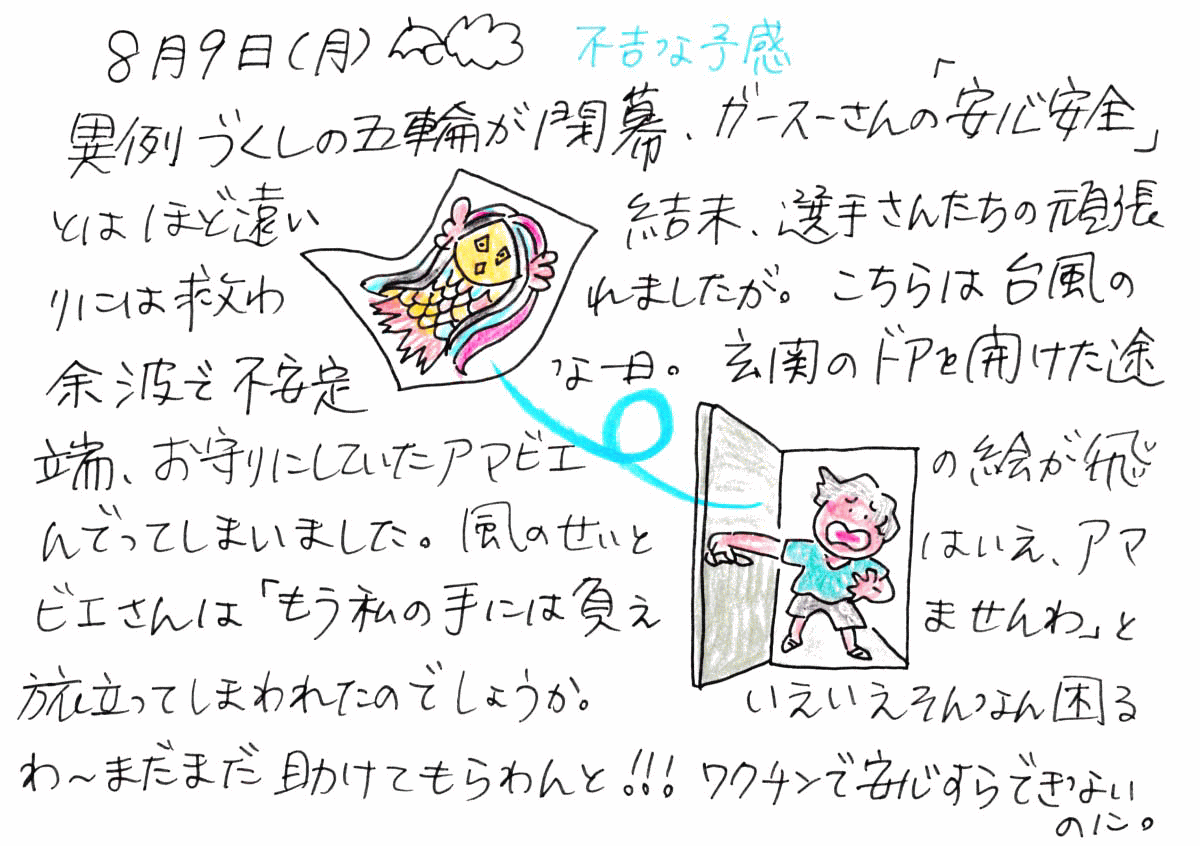 8月9日(月) 不吉な予感
異例づくしの五輪が閉幕、ガースーさんの「安心安全」
とはほど遠い結末、選手さんたちの頑張
りには救われましたが。こちらは台風の
余波で不安定な一日。玄関のドアを開けた途
端、お守りにしていたアマビエの絵が飛
んでってしまいました。風のせいとはいえ、アマ
ビエさんは「もう私の手には負えませんわ」と
旅立ってしまわれたのでしょうか。いえいえそんなん困る
わ~まだまだ助けてもらわんと!!! ワクチンで安心すらできない
のに。